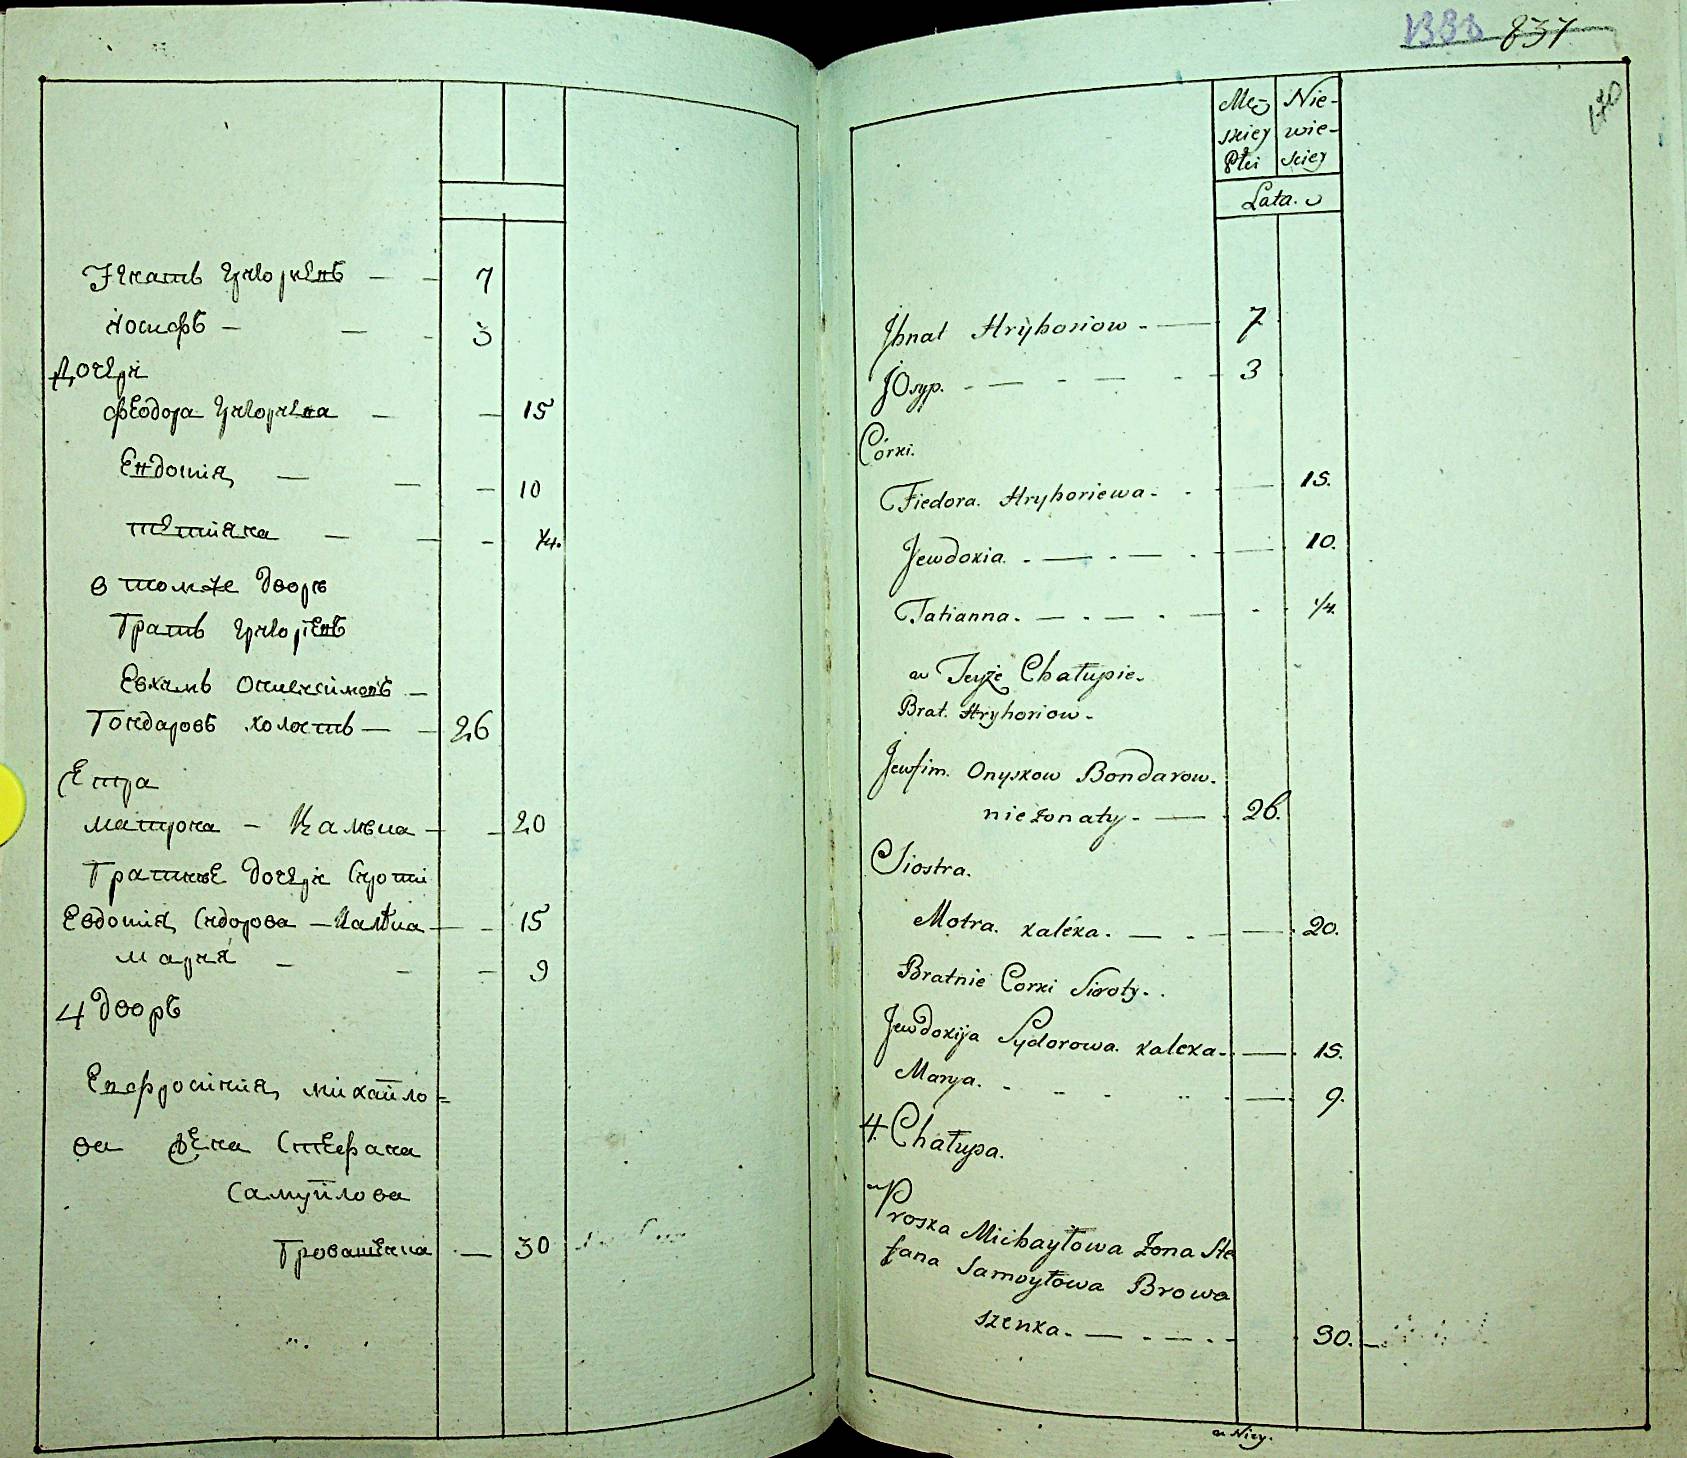 Игнатъ Григориевъ — — 7
Иосифъ — — - 3
Дочери
Феодора Григориева — — 15
Евдотия — — — 10
тетияна — — - 1/4.
в томже дворѣ
Братъ Григориевъ
Евхимъ Онисимовъ —
Бондаровъ холостъ — — 26
Сестра
матрона — Калѣка — - 20
Братние дочери сироти
Евдотия Сидорова — Калѣка — - 15
Мария — - — 9
4 дворъ
Евфросиния михайло=
ва жена Стефана
Самуйлова
Бровашенка - — 30
837
170
Męz skiey Płci
Nie- wie- sciey
Lata.
Jhnat Hryhoriow - — 7
JOsyp. - — - — - - 3
Córki.
Fiedora. Hryhoriewa - - — 15.
Jewdokia. - — - — - — 10.
Tatianna. — - — - — - 1/4.
w Teyże Chałupie.
Brat. Hryhoriow -
Jewfim. Onyskow Bondarow.
nieżonaty - — - 26.
Siostra.
Motra. kaléka. — - — 20.
Bratnie Corki Siroty. .
Jewdokija Sydorowa. kaleka - — 15.
Marya. - - - - — 9.
4. Chałupa.
Proska Michayłowa Żona Ste
fana Samoyłowa Browa
szenka. — - — - - - 30.
w Niey.